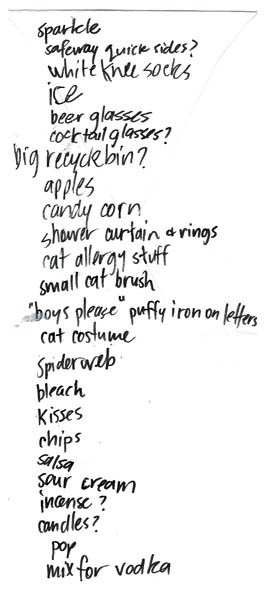 sparkle
safeway quick sides?
white knee socks
ice
beer glasses
cocktail glasses?
big recycle bin?
apples
candy corn
shower curtain & rings
cat allergy stuff
small cat brush
"boys please" puffy iron on letters
cat costume
spiderweb
bleach
kisses
chips
salsa
sour cream
incense?
candles?
pop
mix for vodka